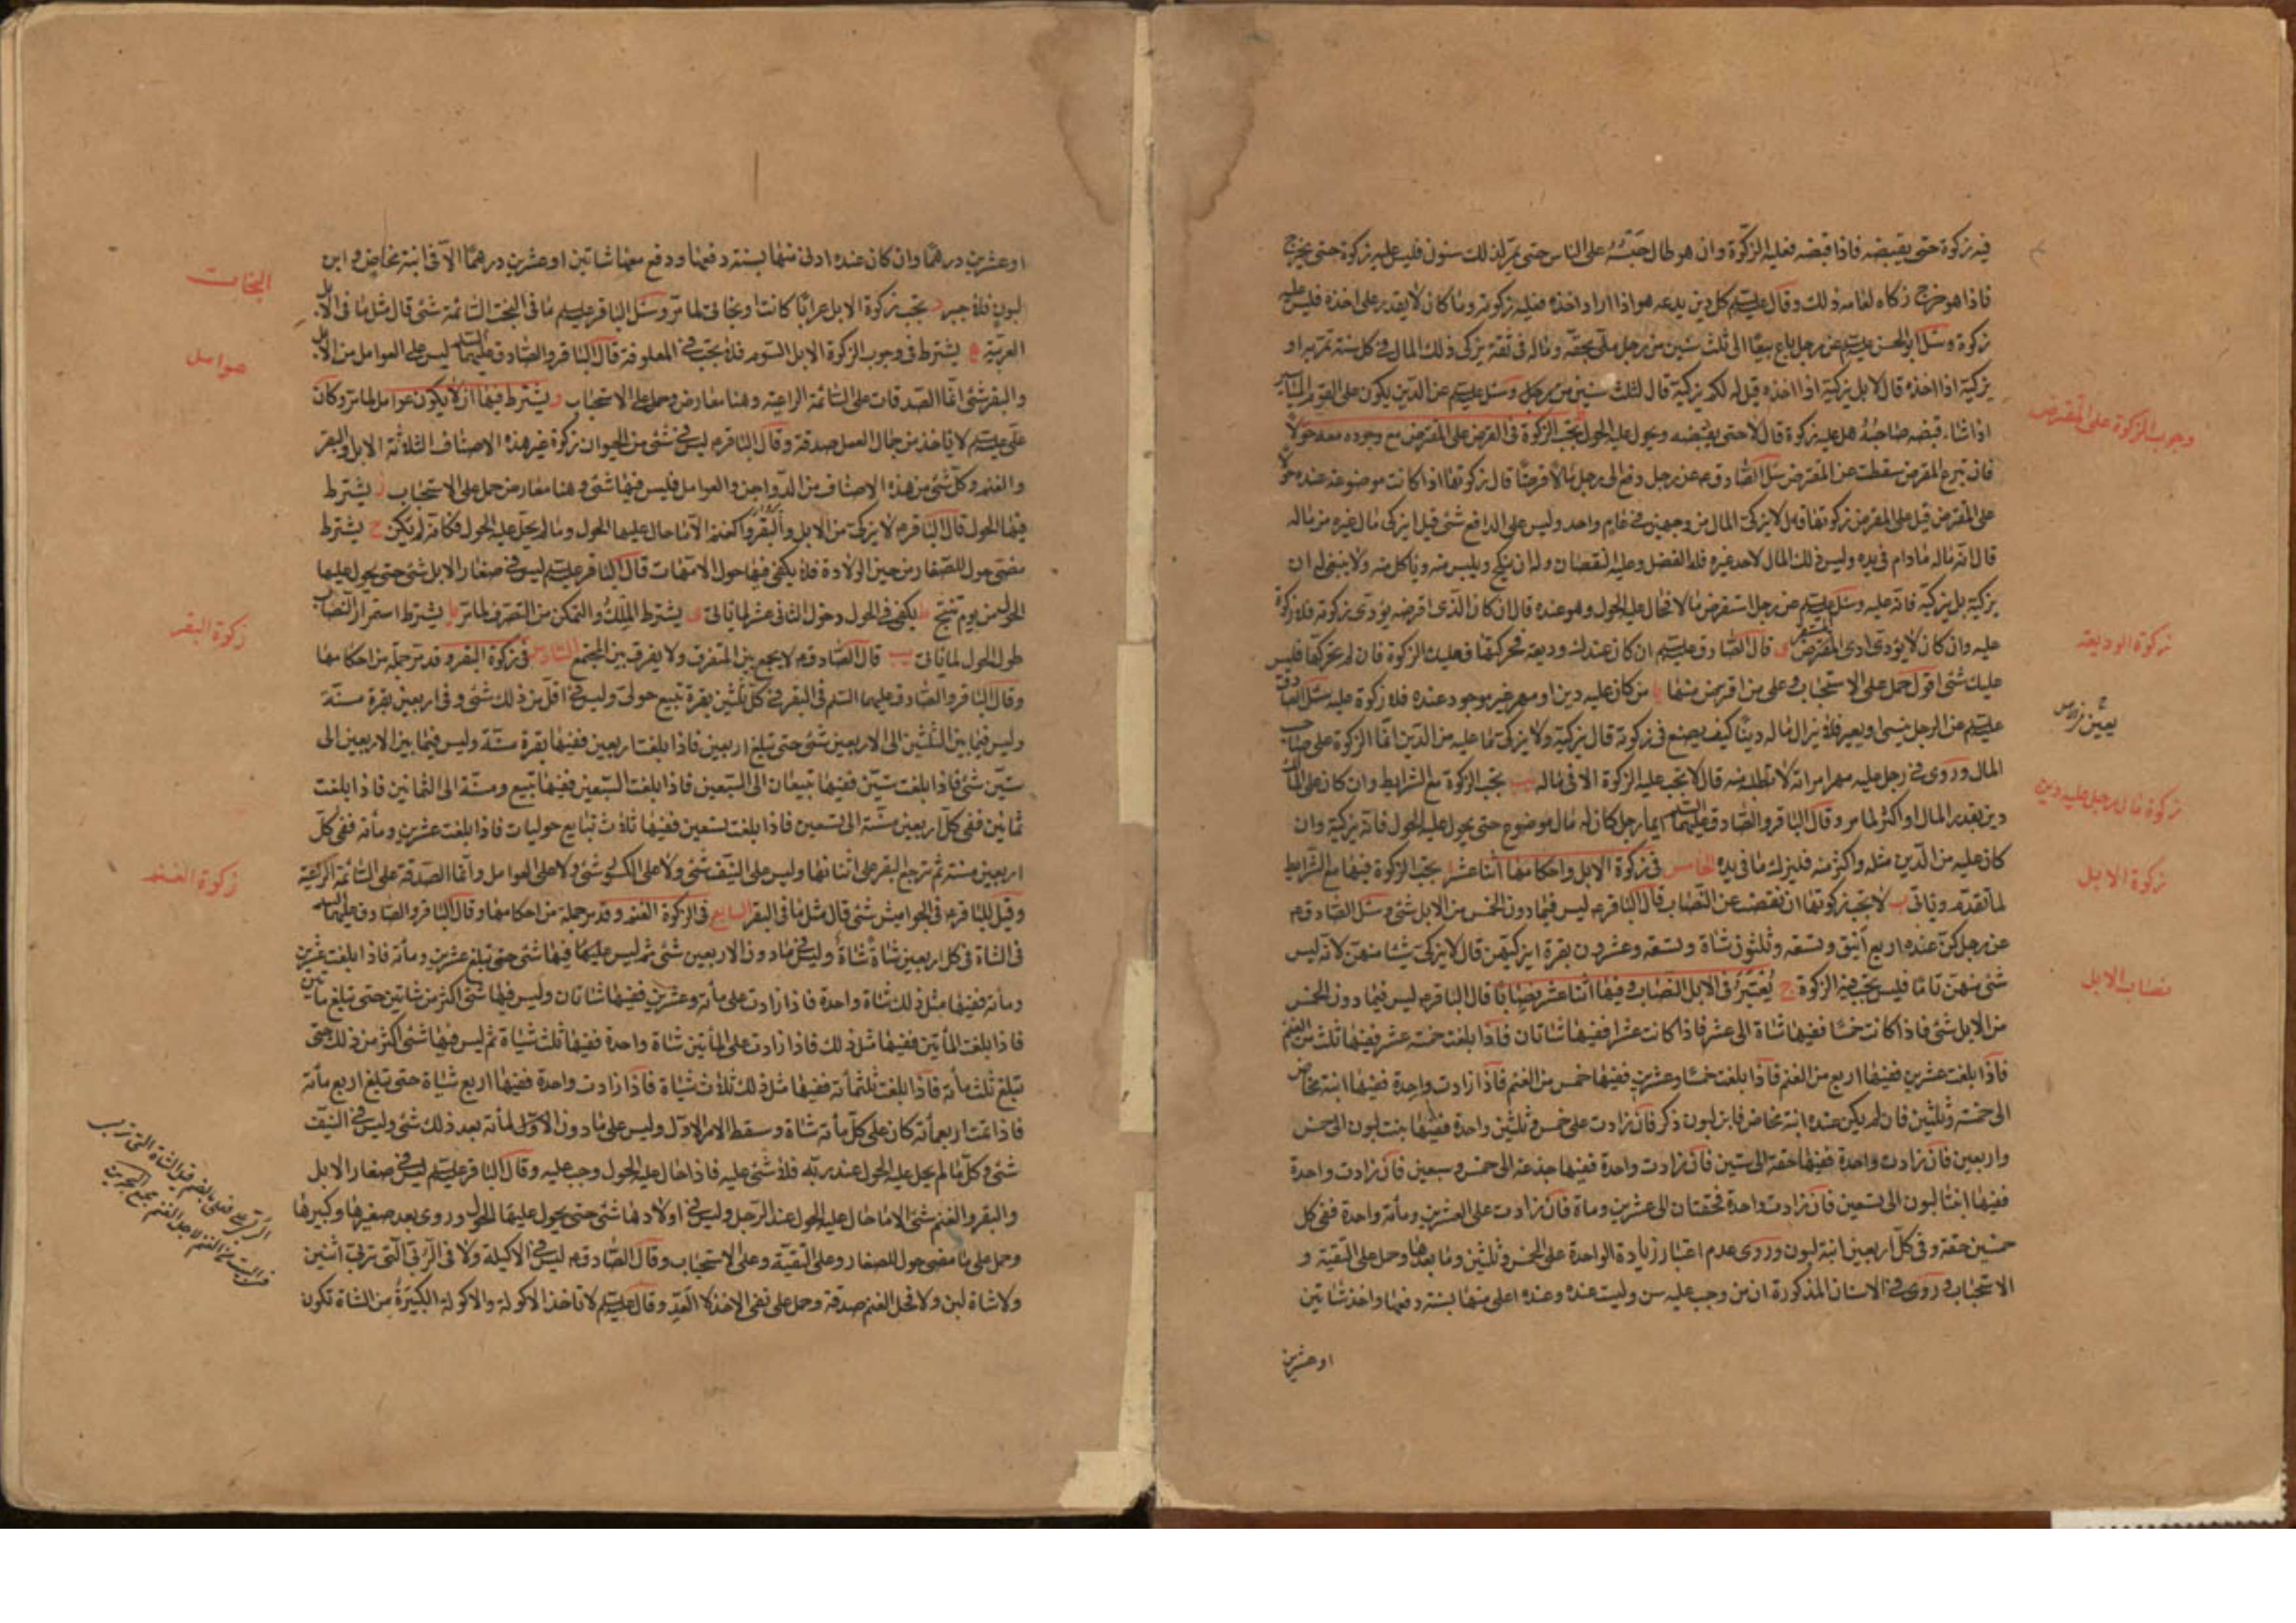 فيه زكوة حتى يقبضه فاذا قبضه فعليه الزكوة وان هو طال حبسه على الناس حتى يمر لذلك سنون فليس عليه زكوة حتى يخرج
فاذا هو خرج زكاه لعامه ذلك وقال عليه السلم كل دين يدعه هو اذا اراد اخذه فعليه زكوته وما كان لا يقدر على اخذه فليس عليه
زكوة وسئل ابو الحسن عليه السلم عن رجل باع بيعا الى ثلث سنين من رجل ملى بحقه وماله فى ثقة يزكى ذلك المال فى كل سنة تمر به او
يزكيه اذا اخذه قال لا بل يزكيه اذا اخذه قيل له لكم يزكيه قال لثلث سنين وسئل عليه السلم عن الدين يكون على القوم المياسير
اذا شاء قبضه صاحبه هل عليه زكوة قال لا حتى يقبضه ويحول عليه الحول تجب الزكوة فى القرض على المقترض مع وجوده معه حولا
فان تبرع المقرض سقطت عن المقترض سئل الصادق ع عن رجل دفع الى رجل مالا قرضا قال زكوتها اذا كانت موضوعة عنده حولا
على المقترض قيل على المقرض زكوتها قال لا يزكى المال من وجهين فى عام واحد وليس على الدافع شئ قيل ايزكى مال غيره من ماله
قال انه ماله مادام فى يده وليس ذلك المال لاحد غيره فله الفضل وعليه النقصان وله ان ينكح ويلبس منه وياكل منه ولا ينبغى له ان
يزكيه بل يزكيه فانه عليه وسئل عليه السلم عن رجل استقرض مالا فحال عليه الحول وهو عنده قال ان كان الذى اقرضه يؤدى زكوته فلا زكوة
عليه وان كان لا يؤدى ادى المستقرض ى قال الصادق عليه السلم ان كان عندك وديعة تحركها فعليك الزكوة فان لم تحركها فليس
عليك شئ اقول حمل على الاستحباب وعلى من اقرض منها يا من كان عليه دين او مهر غير موجود عنده فلا زكوة عليه سئل الصادق
عليه السلم عن الرجل ينسى او يعير فلا يزال ماله دينا كيف يصنع فى زكوته قال يزكيه ولا يزكى ما عليه من الدين انما الزكوة على صاحب
المال وروى فى رجل عليه مهر امراته لا تطلبه منه قال لا تجب عليه الزكوة الا فى ماله يب تجب الزكوة مع الشرايط وان كان على المالك
دين بقدر المال او اكثر لما مر وقال الباقر والصادق عليهما السلم ايما رجل كان له مال موضوع حتى يحول عليه الحول فانه يزكيه وان
كان عليه من الدين مثله واكثر منه فليزك ما فى يده الخامس فى زكوة الابل واحكامها اثنا عشر ا تجب الزكوة فيها مع الشرايط
لما تقدم وياتى ب لا تجب زكوتها ان نقصت عن النصاب قال الباقر ع ليس فيما دون الخمس من الابل شئ وسئل الصادق ع
عن رجل كن عنده اربع انيق وتسعه وثلثون شاة وتسعه وعشرون بقرة ايزكيهن قال لا يزكى شيئا منهن لانه ليس
شئ منهن تاما فليس تجب فيه الزكوة ج يعتبر فى الابل النصاب وفيها اثنا عشر نصابا قال الباقر ع ليس فيما دون الخمس
من الابل شئ فاذا كانت خمسا ففيها شاة الى عشر فاذا كانت عشرا ففيها شاتان فاذا بلغت خمسة عشر ففيها ثلث من الغنم
فاذا بلغت عشرين ففيها اربع من الغنم فاذا بلغت خمسا وعشرين ففيها خمس من الغنم فاذا زادت واحدة ففيها ابنة مخاض
الى خمسة وثلثين فان لم يكن عنده ابنة مخاض فابن لبون ذكر فان زادت على خمس وثلثين واحدة ففيها بنت لبون الى خمس
واربعين فان زادت واحدة ففيها حقة الى ستين فان زادت واحدة ففيها جذعة الى خمس وسبعين فان زادت واحدة
ففيها ابنتا لبون الى تسعين فان زادت واحدة فحقتان الى عشرين ومأة فان زادت على العشرين ومأته واحدة ففى كل
خمسين حقة وفى كل اربعين ابنة لبون وروى عدم اعتبار زيادة الواحدة على الخمس وثلثين وما بعدها وحمل على التقية و
الاستحباب وروى فى الاسنان المذكورة ان من وجب عليه سن وليست عنده وعنده اعلى منها بسنة دفعها واخذ شاتين
او عشرين
وجوب الزكوة على المقرض
زكوة الوديعة
زكوة مال رجل عليه دين
زكوة الابل
نصاب الابل
او عشرين درهما وان كان عنده ادنى منها بسنة دفعها ودفع معها شاتين او عشرين درهما الا فى ابنة مخاض وابن
لبون فلا جبر د تجب زكوة الابل عرابا كانت او بخاتى لما مر وسئل الباقر عليه السلم ما فى البخت السائمة شئ قال مثل ما فى الابل
العربية ه يشترط فى وجوب الزكوة الابل السوم فلا تجب فى المعلوفة قال الباقر والصادق عليهما السلم ليس على العوامل من الابل
والبقر شئ انما الصدقات على السائمة الراعية وهنا معارض وحمل على الاستحباب و يشترط فيها ان لا يكون عوامل لما مر وكان
على عليه السلم لا ياخذ من جمال العمل صدقة وقال الباقر ع ليس فى شئ من الحيوان زكوة غير هذه الاصناف الثلاثة الابل والبقر
والغنم وكل شئ من هذه الاصناف من الدواجن والعوامل فليس فيها شئ وهنا معارض حمل على الاستحباب ز يشترط
فيها الحول قال الباقر ع لا يزكى من الابل والبقر والغنم الا ما حال عليها الحول وما لم يحل عليه الحول فكانه لم يكن ح يشترط
مضى حول للصغار من حين الولادة فلا يكفى فيها حول الامهات قال الباقر عليه السلم ليس فى صغار الابل شئ حتى يحول عليها
الحول من يوم تنتج ط يكفى فى الحول دخول الثانى عشر لما ياتى ى يشترط الملك والتمكن من التصرف لما مر يا يشترط استمرار النصاب
طول الحول لما ياتى يب قال الصادق ع لا يجمع بين المتفرق ولا يفرق بين المجتمع السادس فى زكوة البقر وقد مر جملة من احكامها
وقال الباقر والصادق عليهما السلم فى البقر فى كل ثلثين بقرة تبيع حولى وليس فى اقل من ذلك شئ وفى اربعين بقرة مسنة
وليس فيما بين الثلثين الى الاربعين شئ حتى تبلغ اربعين فاذا بلغت اربعين ففيها بقرة مسنة وليس فيما بين الاربعين الى
ستين شئ فاذا بلغت ستين ففيها تبيعان الى السبعين فاذا بلغت السبعين ففيها تبيع ومسنة الى الثمانين فاذا بلغت
ثمانين ففى كل اربعين مسنة الى تسعين فاذا بلغت تسعين ففيها ثلاث تبايع حوليات فاذا بلغت عشرين ومأته ففى كل
اربعين مسنة ثم ترجع البقر على اسنانها وليس على النيف شئ ولا على الكسور شئ ولا على العوامل وانما الصدقة على السائمة الراعية
وقيل للباقر ع فى الجواميس شئ قال مثل ما فى البقر السابع فى الزكوة الغنم وقد مر جملة من احكامها وقال الباقر والصادق عليهما السلم
فى الشاة فى كل اربعين شاة شاة وليس فى ما دون الاربعين شئ ثم ليس عليها فيها شئ حتى تبلغ عشرين ومأته فاذا بلغت عشرين
ومأته ففيها مثل ذلك شاة واحدة فاذا زادت على مأته وعشرين ففيها شاتان وليس فيها شئ اكثر من شاتين حتى تبلغ مأتين
فاذا بلغت المأتين ففيها مثل ذلك فاذا زادت على المأتين شاة واحدة ففيها ثلث شياة ثم ليس فيها شئ اكثر من ذلك حتى
تبلغ ثلث مأته فاذا بلغت ثلثمأته ففيها مثل ذلك ثلاث شياة فاذا زادت واحدة ففيها اربع شياة حتى تبلغ اربع مأته
فاذا تمت اربعمأته كان على كل مأته شاة وسقط الامر الاول وليس على ما دون المأته بعد ذلك شئ وليس فى النيف
شئ وكل ما لم يحل عليه الحول عند ربه فلا شئ عليه فاذا حال عليه الحول وجب عليه وقال الباقر عليه السلم ليس فى صغار الابل
والبقر والغنم شئ الا ما حال عليه الحول عند الرجل وليس فى اولادها شئ حتى يحول عليها الحول وروى يعد صغيرها وكبيرها
وحمل على ما مضى حول للصغار وعلى التقية وعلى الاستحباب وقال الصادق ع ليس فى الاكيلة ولا فى الربى التى تربى اثنين
ولا شاة لبن ولا فحل الغنم صدقة وحمل على نفى الاخذ لا العد وقال عليه السلم لا تاخذ الاكولة والاكولة الكبيرة من الشاة تكون
عوامل
زكوة البقر
زكوة الغنم